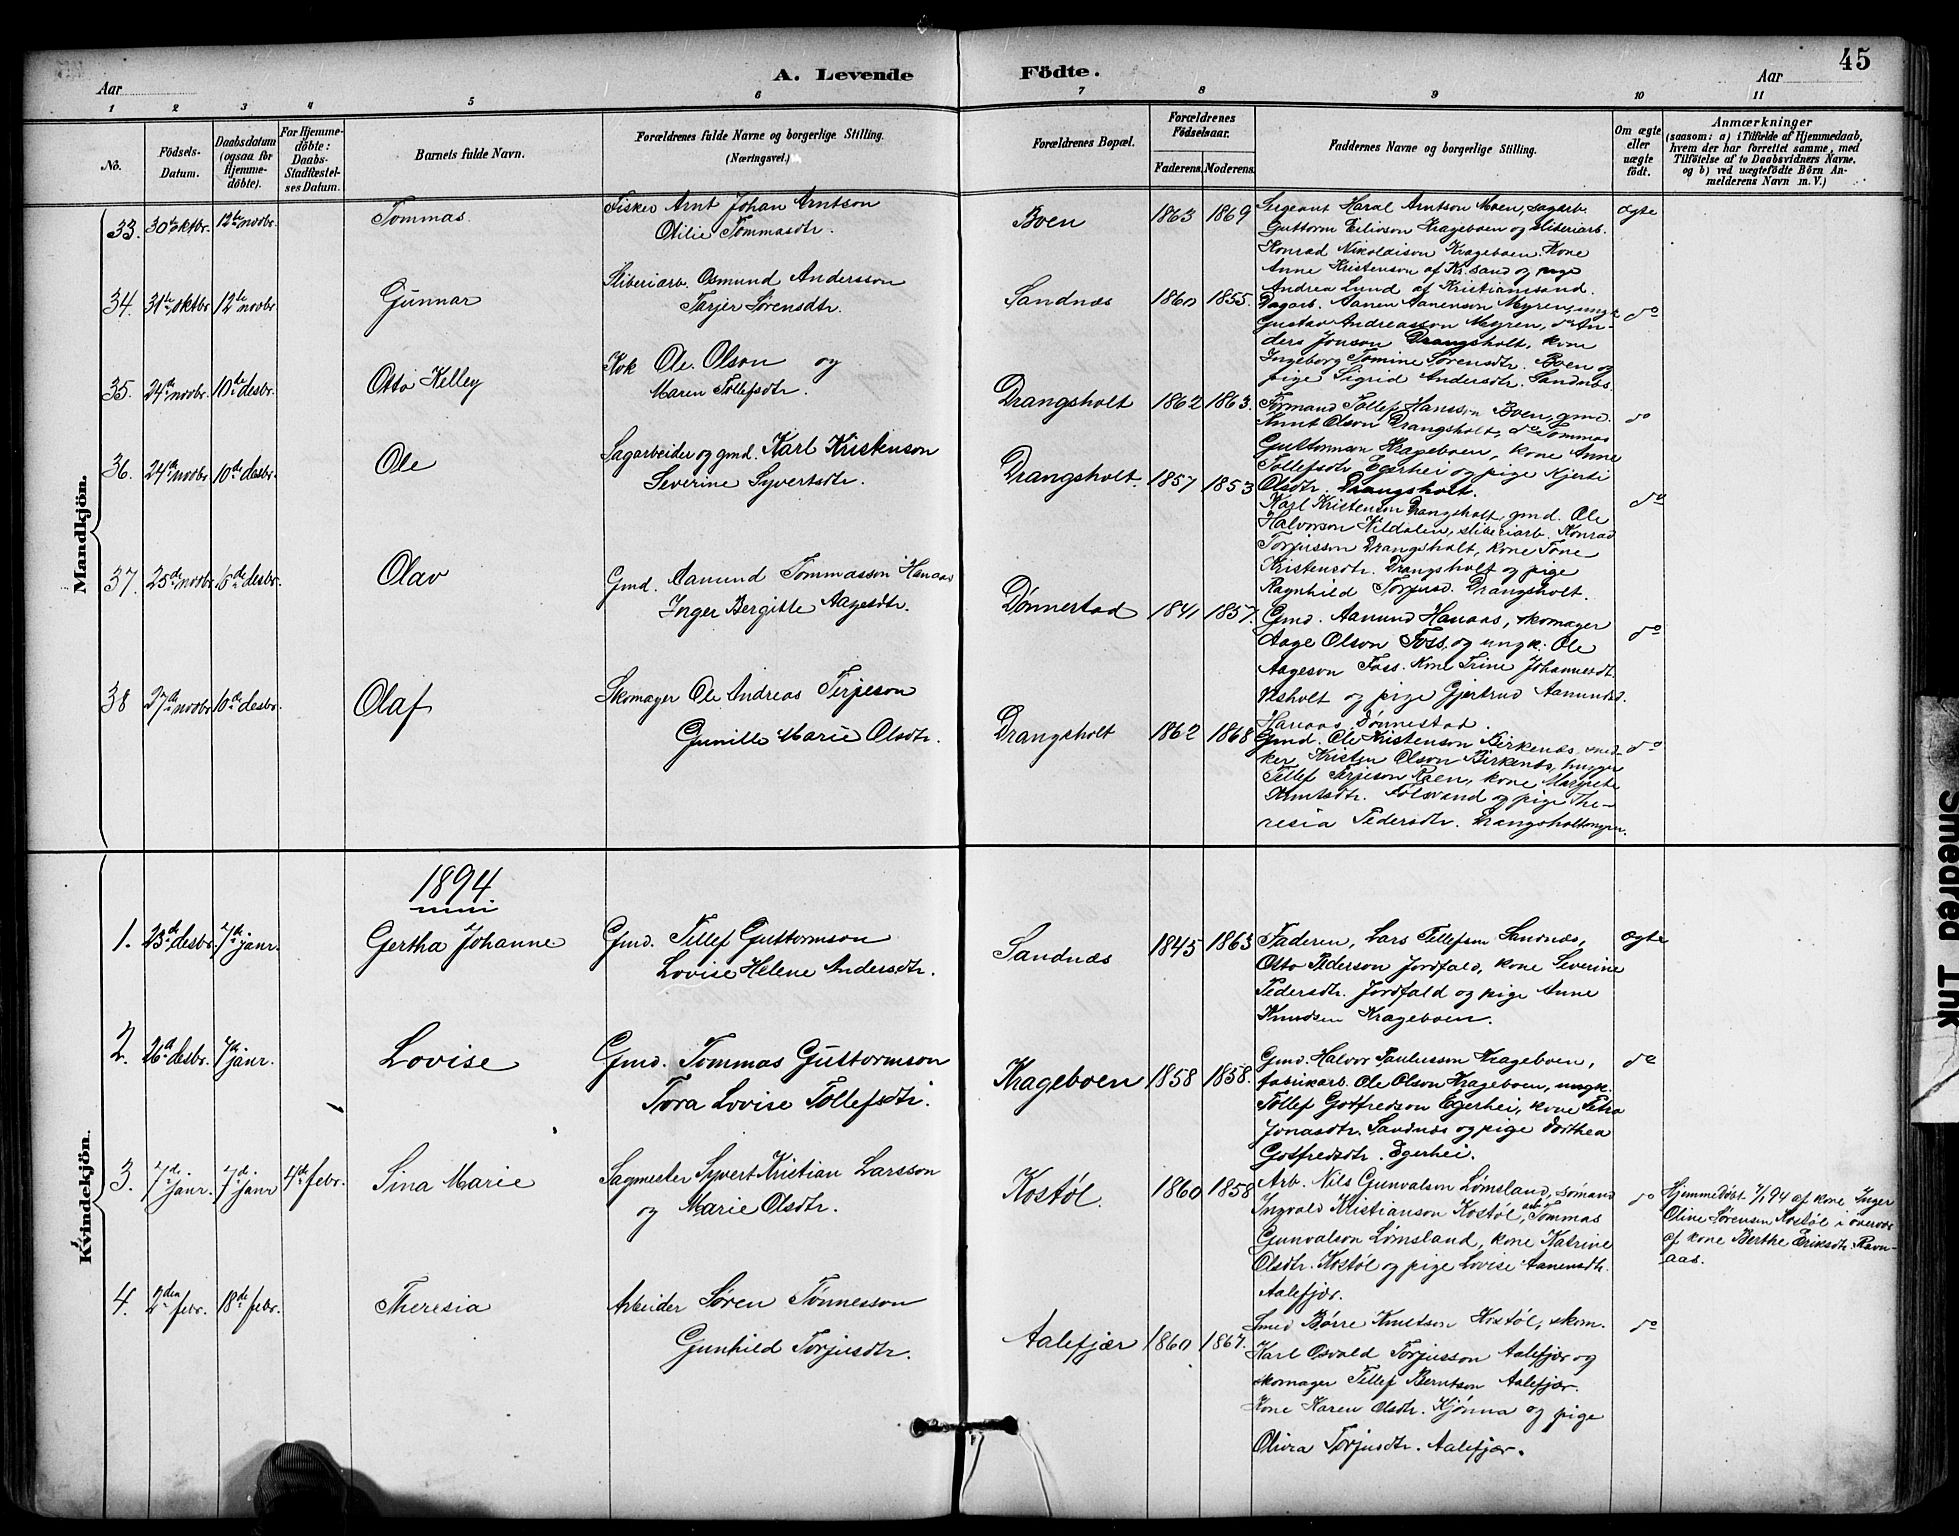 45
A. Levende Födte.
Aar
Aar
1 2 3 4 5 6 7 8 9 10 11
No.
Födsels-
Datum.
Daabsdatum
(ogsaa for
Hjemme-
döbte).
For Hjemme-
döbte:
Daabs-
Stadfæstel-
ses Datum.
Barnets fulde Navn.
Forældrenes fulde Navne og borgerlige Stilling.
(Næringsvei.)
Forældrenes Bopæl.
Forældrenes
Födselsaar.
Faderens. Moderens.
Faddernes Navne og borgerlige Stilling.
Om ægte
eller
uægte
födt.
Anmærkninger
(saasom: a) i Tilfælde af Hjemmedaab,
hvem der har forrettet samme, med
Tilföielse af to Daabsvidners Navne.
og b) ved uægtefödte Börn An-
melderens Navn m. V.)
Mandkjön.
33. 30te oktbr. 12te novbr. Tommas.
Fisker Arnt Johan Arntson
Otilie Tommasdtr.
Boen 1863 1869
Sergeant Haral Arntson Moen, sagarb.
Guttorm Eilivson Krageboen og sliberiarb.
Konrad Nikolaison Krageboen. Kone
Anne Kristenson af Kr.sand og pige
Andrea Lund af Kristianssand.
ægte
34. 31te oktbr. 12te novbr. Gunnar
Sliberiarb. Osmund Andersson
Tarjer Sørensdtr.
Sandnæs 1860 1855.
Dagarb. Aanen Aanenson Myren, ungk.
Gustav Andreasson Myren, do An-
ders Jonson Drangsholt, kone
Ingeborg Tomine Sørensdtr. Boen og
pige Sigrid Andersdtr. Sandnæs.
do
35. 24de novbr. 10de desbr. Otto Kelley
Kok Ole Olson og
Maren Tollefsdtr.
Drangsholt 1862 1863.
Formand Tollef Hansson Boen, gmd.
Arnt Olson Drangsholt, do Tommas
Guttormson Krageboen, kone Anne
Tollefsdtr. Egerhei og pige Kjersti
Olsdtr. Drangsholt.
do
36. 24de novbr. 10de desbr. Ole
Sagarbeider og gmd. Karl Kristenson
Severine Syvertsdtr.
Drangsholt. 1857 1853
Karl Kristenson Drangsholt, gmd. Ole
Halvorson Kildalen, sliberiarb. Konrad
Torjusson Drangsholt, kone Tone
Kristensdtr. Drangsholt og pige
Ragnhild Torjusd. Drangsholt.
do
37. 25de novbr. 6te desbr. Olav
Gmd. Aamund Tommasson Hanaas
Inger Bergitte Aagesdtr.
Dønnestad 1841 1857.
Gmd. Aamund Hanaas, skomager
Aage Olson Foss, og ungk. Ole
Aageson Foss. Kone Trine Johannesdt.
Vesholt og pige Gjertrud Aamundsd.
Hanaas, Dønnestad.
do
38 27de novbr 10de desbr. Olaf
Skomager Ole Andreas Terjeson
Gunille Marie Olsdtr.
Drangsholt 1862 1868
Gmd. Ole Kristenson Birkenæs, sned-
ker Kristen Olson Birkenæs, hugger
Tellef Terjeson Raen, kone Margrete
Knutsdtr. Følsvand og pige The-
resia Pedersdtr. Drangsholtmyren.
do
Kvindekjön.
1894
1. 23de desbr. 7de janr. Gertha Johanne
Gmd. Tellef Guttormson
Lovise Helene Andersdtr.
Sandnæs 1845 1863
Faderen, Lars Tellefsen Sandnæs,
Otto Pederson Jordfald, kone Severine
Pedersdtr. Jordfald og pige Anne
Knudsen Krageboen.
ægte
2. 26de desbr. 7de janr. Lovise
Gmd. Tommas Guttormson
Tora Lovise Tollefsdtr.
Krageboen 1858 1858.
Gmd. Halvor Paulusson Krageboen,
fabrikarb. Ole Olson Krageboen, ungk.
Tollef Gotfredson Egerhei, kone Petra
Jonasdtr. Sandnæs og pige Dorthea
Gotfredsdtr. Egerhei.
do
3. 7de janr. 7de janr 4de febr. Sina Marie
Sagmester Syvert Kristian Larsson
og Marie Olsdtr.
Kostøl. 1860 1858
Arb. Nils Gunvalson Lømsland, sømand
Ingvald Kristianson Kostøl, arb. Tommas
Gunvalson Lømsland, kone Katrine
Olsdtr. Kostøl og pige Lovise Aanensdtr.
Aalefjær.
do
Hjemmedøbt 7/1 94 af kone Inger
Oline Sørensen Kostøl i overvær
af kone Berthe Eriksdtr. Ravn-
aas.
4. 2den febr. 18de febr. Theresia
Arbeider Søren Tønnesson
Gunhild Torjusdtr.
Aalefjær 1860 1867.
Smed Børre Knutson Kostøl, skom.
Karl Osvald Torjusson Aalefjær og
skomager Tellef Berntson Aalefjær.
Kone Karen Olsdtr. Kjønna og pige
Olivia Torjusdtr. Aalefjær.
do
Smeared Ink